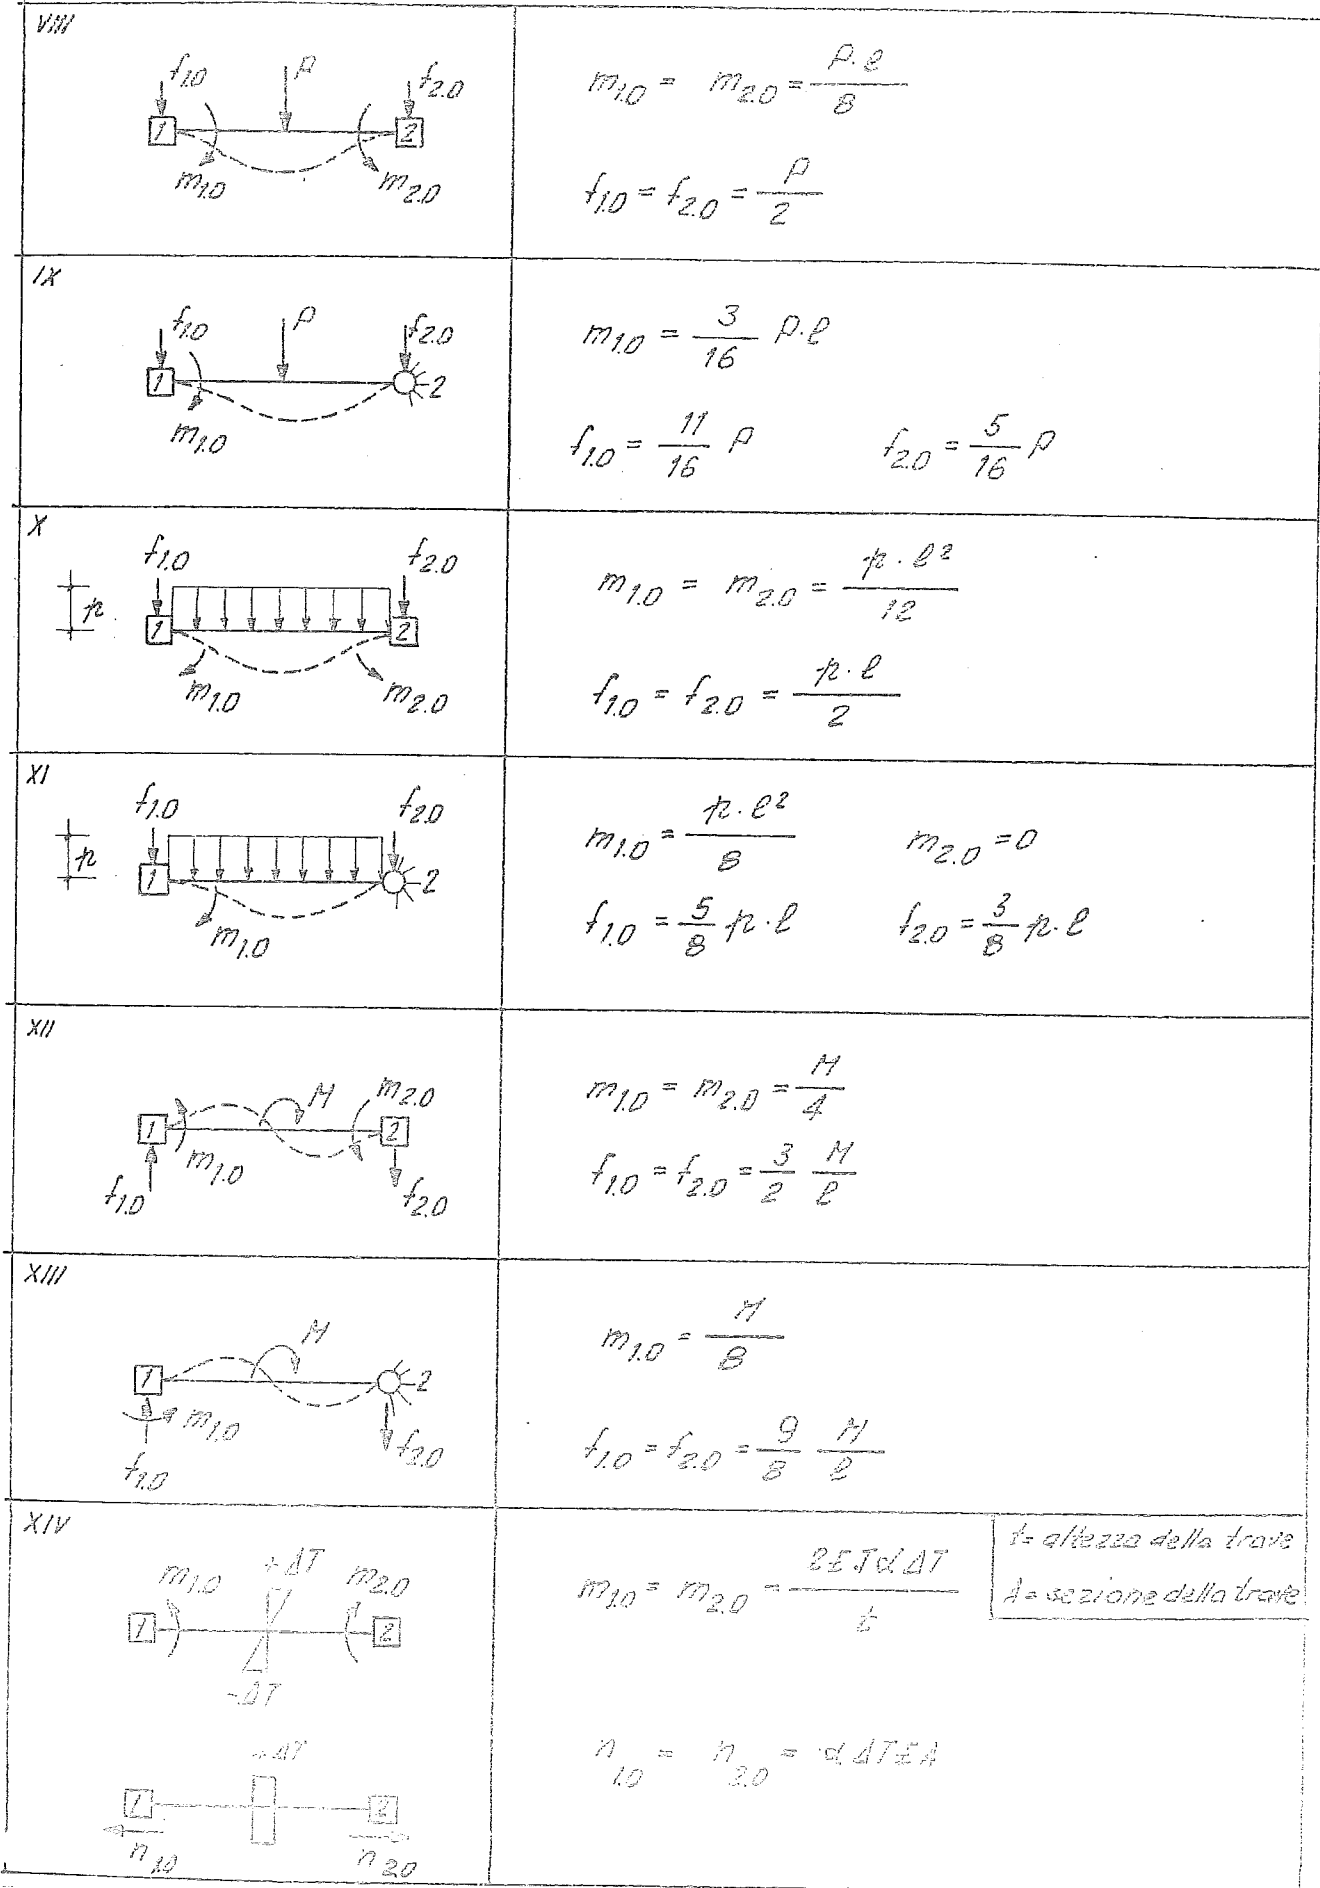 VIII
f1.0 P f2.0
1 2
m1.0 m2.0
m1.0 = m2.0 = P·l / 8
f1.0 = f2.0 = P / 2
IX
f1.0 P f2.0
1 2
m1.0
m1.0 = 3/16 P·l
f1.0 = 11/16 P f2.0 = 5/16 P
X
f1.0 f2.0
p 1 2
m1.0 m2.0
m1.0 = m2.0 = p·l² / 12
f1.0 = f2.0 = p·l / 2
XI
f1.0 f2.0
p 1 2
m1.0
m1.0 = p·l² / 8 m2.0 = 0
f1.0 = 5/8 p·l f2.0 = 3/8 p·l
XII
M m2.0
1 2
m1.0
f1.0 f2.0
m1.0 = m2.0 = M/4
f1.0 = f2.0 = 3/2 M/l
XIII
M
1 2
m1.0
f1.0 f2.0
m1.0 = M/8
f1.0 = f2.0 = 9/8 M/l
XIV
m1.0 +ΔT m2.0
1 2
-ΔT
m1.0 = m2.0 = 2EJαΔT / t
t = altezza della trave
A = sezione della trave
+ΔT
1 2
n1.0 n2.0
n1.0 = n2.0 = αΔTEA